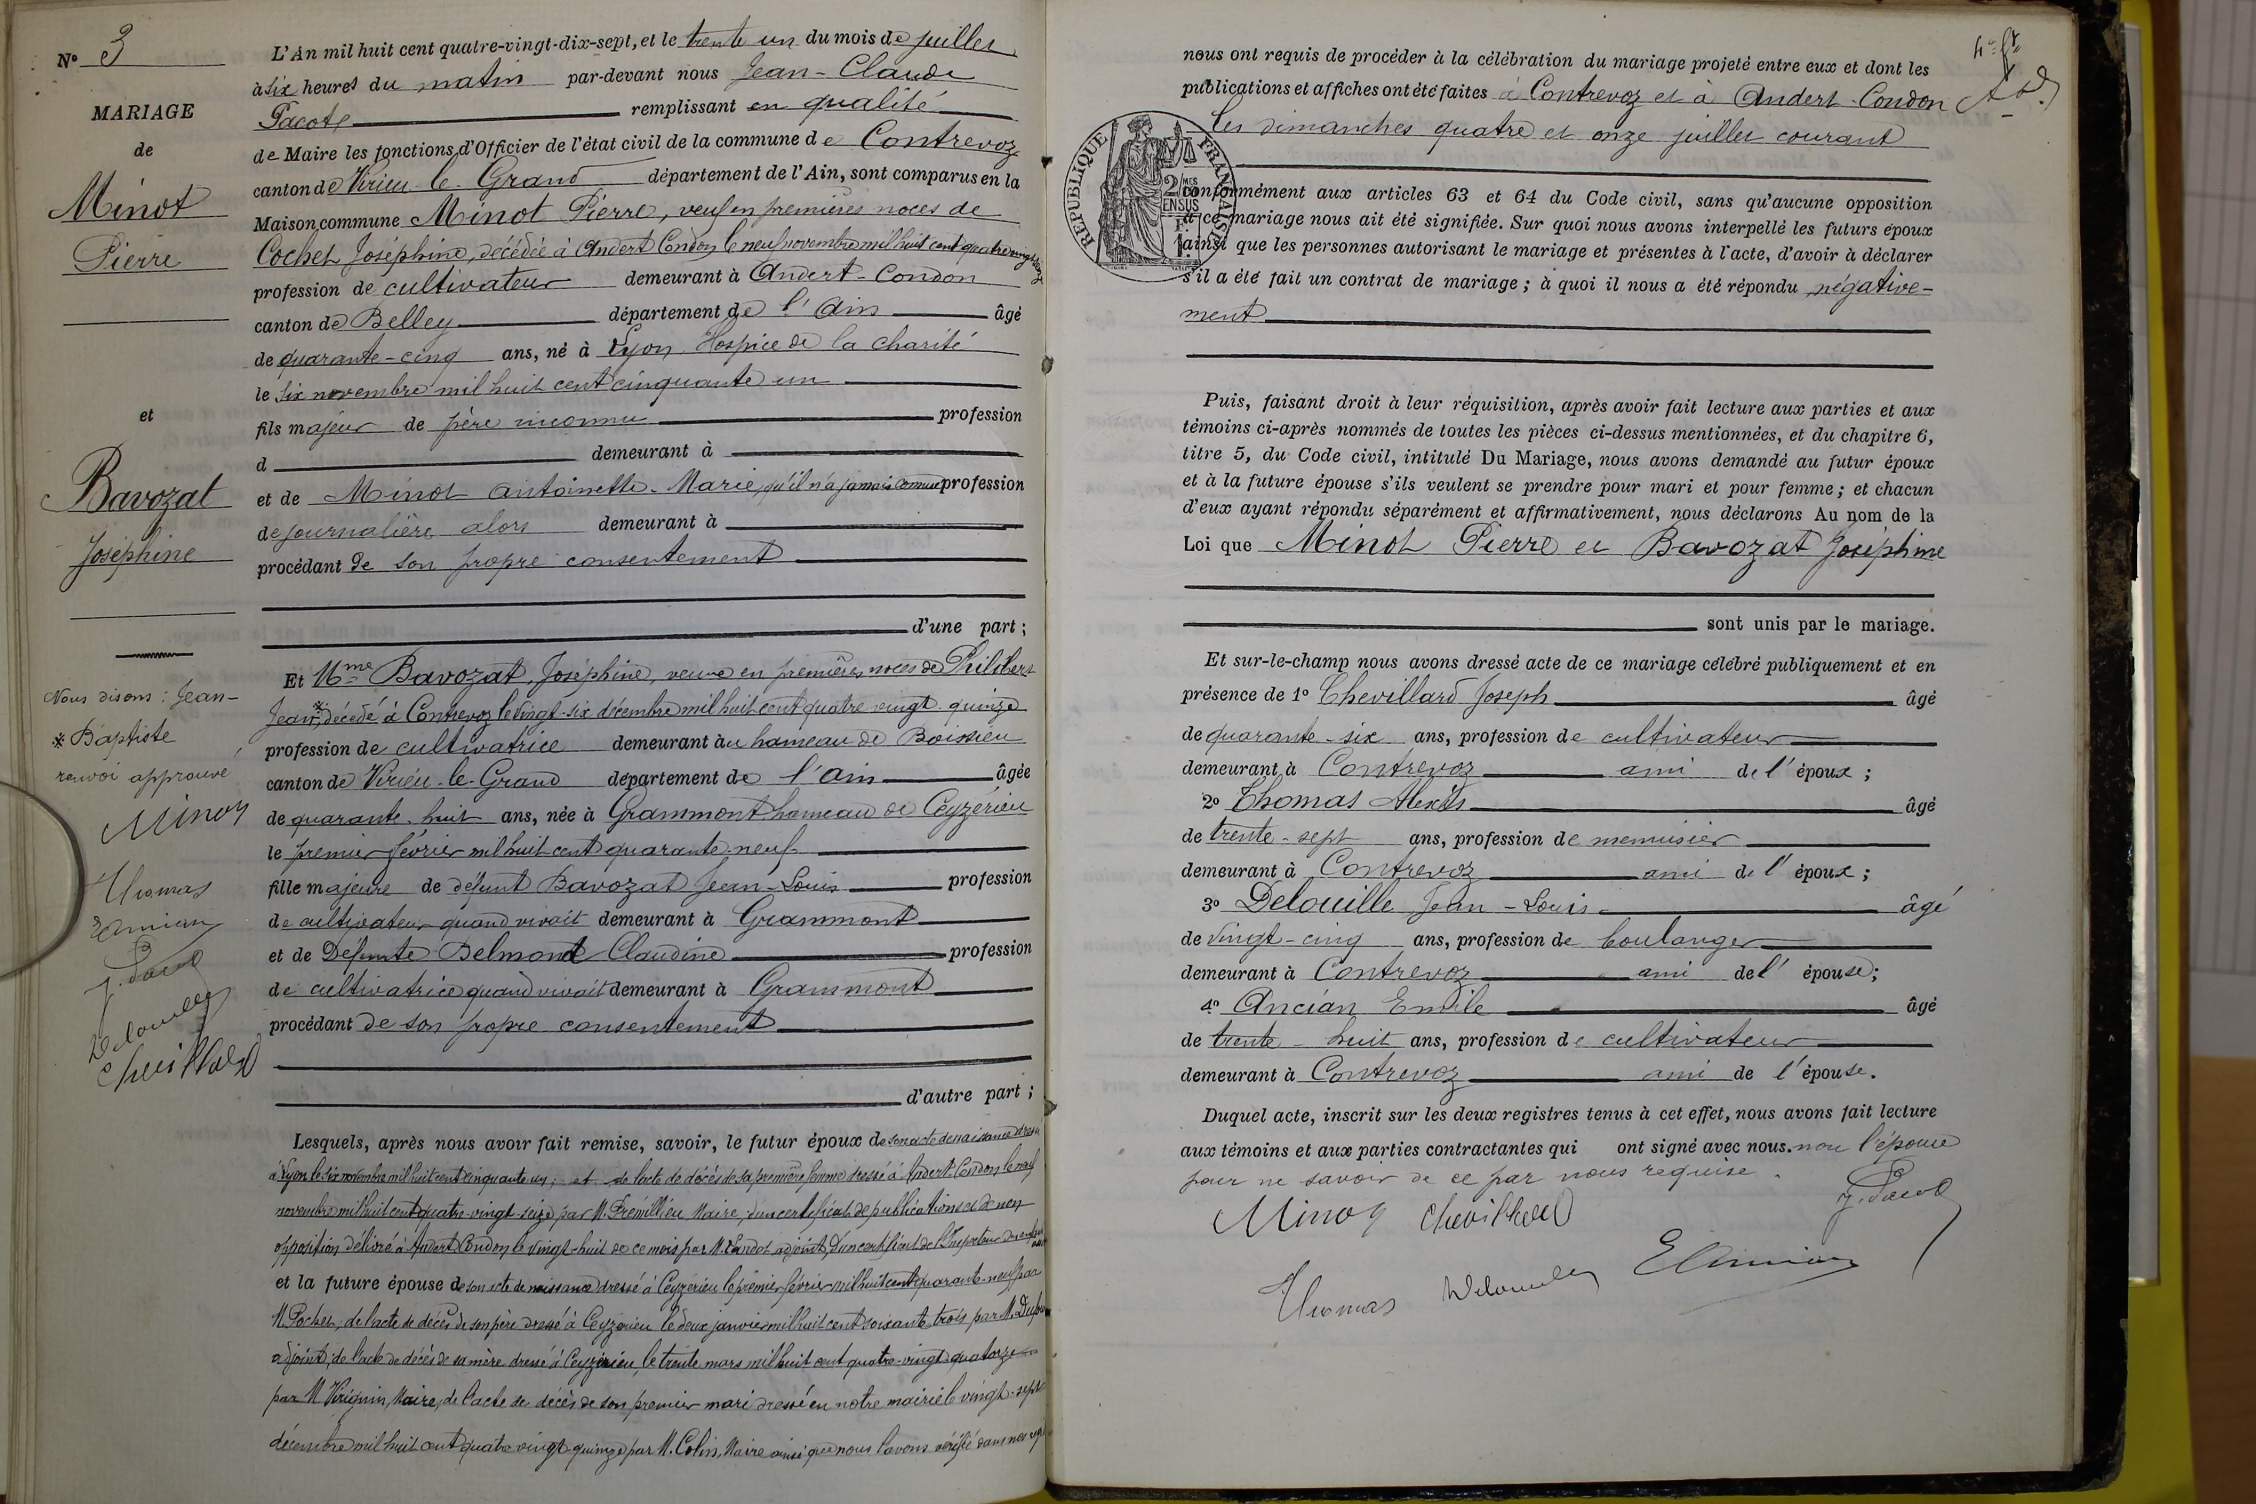 N° 3
MARIAGE
de
Minot
Pierre
et
Bavozat
Joséphine
Nous disons : Jean-
* Baptiste
renvoi approuvé
Minot
Thomas
E Ancian
J. Pacot
Delouille
Chevillard
L'An mil huit cent quatre-vingt-dix-sept, et le trente un du mois de juillet
à six heures du matin par-devant nous Jean-Claude
Pacot remplissant en qualité
de Maire les fonctions d'Officier de l'état civil de la commune de Contrevoz
canton de Virieu-le-Grand département de l'Ain, sont comparus en la
Maison commune Minot Pierre, veuf en premières noces de
Cochet Joséphine, décédée à Andert-Condon le neuf novembre mil huit cent quatre vingt seize
profession de cultivateur demeurant à Andert-Condon
canton de Belley département de l'Ain âgé
de quarante-cinq ans, né à Lyon Hospice de la charité
le six novembre mil huit cent cinquante un
fils majeur de père inconnu profession
d demeurant à
et de Minot Antoinette-Marie, qu'il n'a jamais connue profession
de journalière alors demeurant à
procédant de son propre consentement
d'une part ;
Et Mme Bavozat, Joséphine, veuve en premières noces de Philibert
Jean*, décédé à Contrevoz le vingt-six décembre mil huit cent quatre vingt-quinze
profession de cultivatrice demeurant au hameau de Boissieu
canton de Virieu-le-Grand département de l'Ain âgée
de quarante-huit ans, née à Grammont hameau de Ceyzérieu
le premier février mil huit cent quarante-neuf
fille majeure de défunt Bavozat Jean-Louis profession
de cultivateur quand vivait demeurant à Grammont
et de Défunte Belmont Claudine profession
de cultivatrice quand vivait demeurant à Grammont
procédant de son propre consentement
d'autre part ;
Lesquels, après nous avoir fait remise, savoir, le futur époux de son acte de naissance dressé
à Lyon le six novembre mil huit cent cinquante un ; et de l'acte de décès de sa première femme dressé à Andert-Condon le neuf
novembre mil huit cent quatre-vingt-seize par M. Prémillieu Maire, d'un certificat de publications et de non
opposition délivré à Andert Condon le vingt-huit de ce mois par M. adjoint, d'un certificat de l'Inspecteur des enfants
et la future épouse de son acte de naissance dressé à Ceyzérieu le premier février mil huit cent quarante-neuf par
M. Pochet, de l'acte de décès de son père dressé à Ceyzérieu le deux janvier mil huit cent soixante-trois par M.
adjoint, de l'acte de décès de sa mère dressé à Ceyzérieu, le trente mars mil huit cent quatre-vingt quatorze
par M. Virignin, Maire, de l'acte de décès de son premier mari dressé en notre mairie le vingt-sept
décembre mil huit cent quatre vingt-quinze par M. Colin, Maire ainsi que nous l'avons vérifié dans nos
nous ont requis de procéder à la célébration du mariage projeté entre eux et dont les
publications et affiches ont été faites à Contrevoz et à Andert-Condon
les dimanches quatre et onze juillet courant
RÉPUBLIQUE FRANÇAISE
conformément aux articles 63 et 64 du Code civil, sans qu'aucune opposition
à ce mariage nous ait été signifiée. Sur quoi nous avons interpellé les futurs époux
ainsi que les personnes autorisant le mariage et présentes à l'acte, d'avoir à déclarer
s'il a été fait un contrat de mariage ; à quoi il nous a été répondu négative-
ment
Puis, faisant droit à leur réquisition, après avoir fait lecture aux parties et aux
témoins ci-après nommés de toutes les pièces ci-dessus mentionnées, et du chapitre 6,
titre 5, du Code civil, intitulé Du Mariage, nous avons demandé au futur époux
et à la future épouse s'ils veulent se prendre pour mari et pour femme ; et chacun
d'eux ayant répondu séparément et affirmativement, nous déclarons Au nom de la
Loi que Minot Pierre et Bavozat Joséphine
sont unis par le mariage.
Et sur-le-champ nous avons dressé acte de ce mariage célébré publiquement et en
présence de 1° Chevillard Joseph âgé
de quarante-six ans, profession de cultivateur
demeurant à Contrevoz ami de l'époux ;
2° Thomas Alexis âgé
de trente-sept ans, profession de menuisier
demeurant à Contrevoz ami de l'époux ;
3° Delouille Jean-Louis âgé
de vingt-cinq ans, profession de boulanger
demeurant à Contrevoz ami de l'épouse ;
4° Ancian Emile âgé
de trente-huit ans, profession de cultivateur
demeurant à Contrevoz ami de l'épouse.
Duquel acte, inscrit sur les deux registres tenus à cet effet, nous avons fait lecture
aux témoins et aux parties contractantes qui ont signé avec nous. non l'épouse
pour ne savoir de ce par nous requise.
Minot Chevillard J. Pacot
Thomas Delouille E Ancian